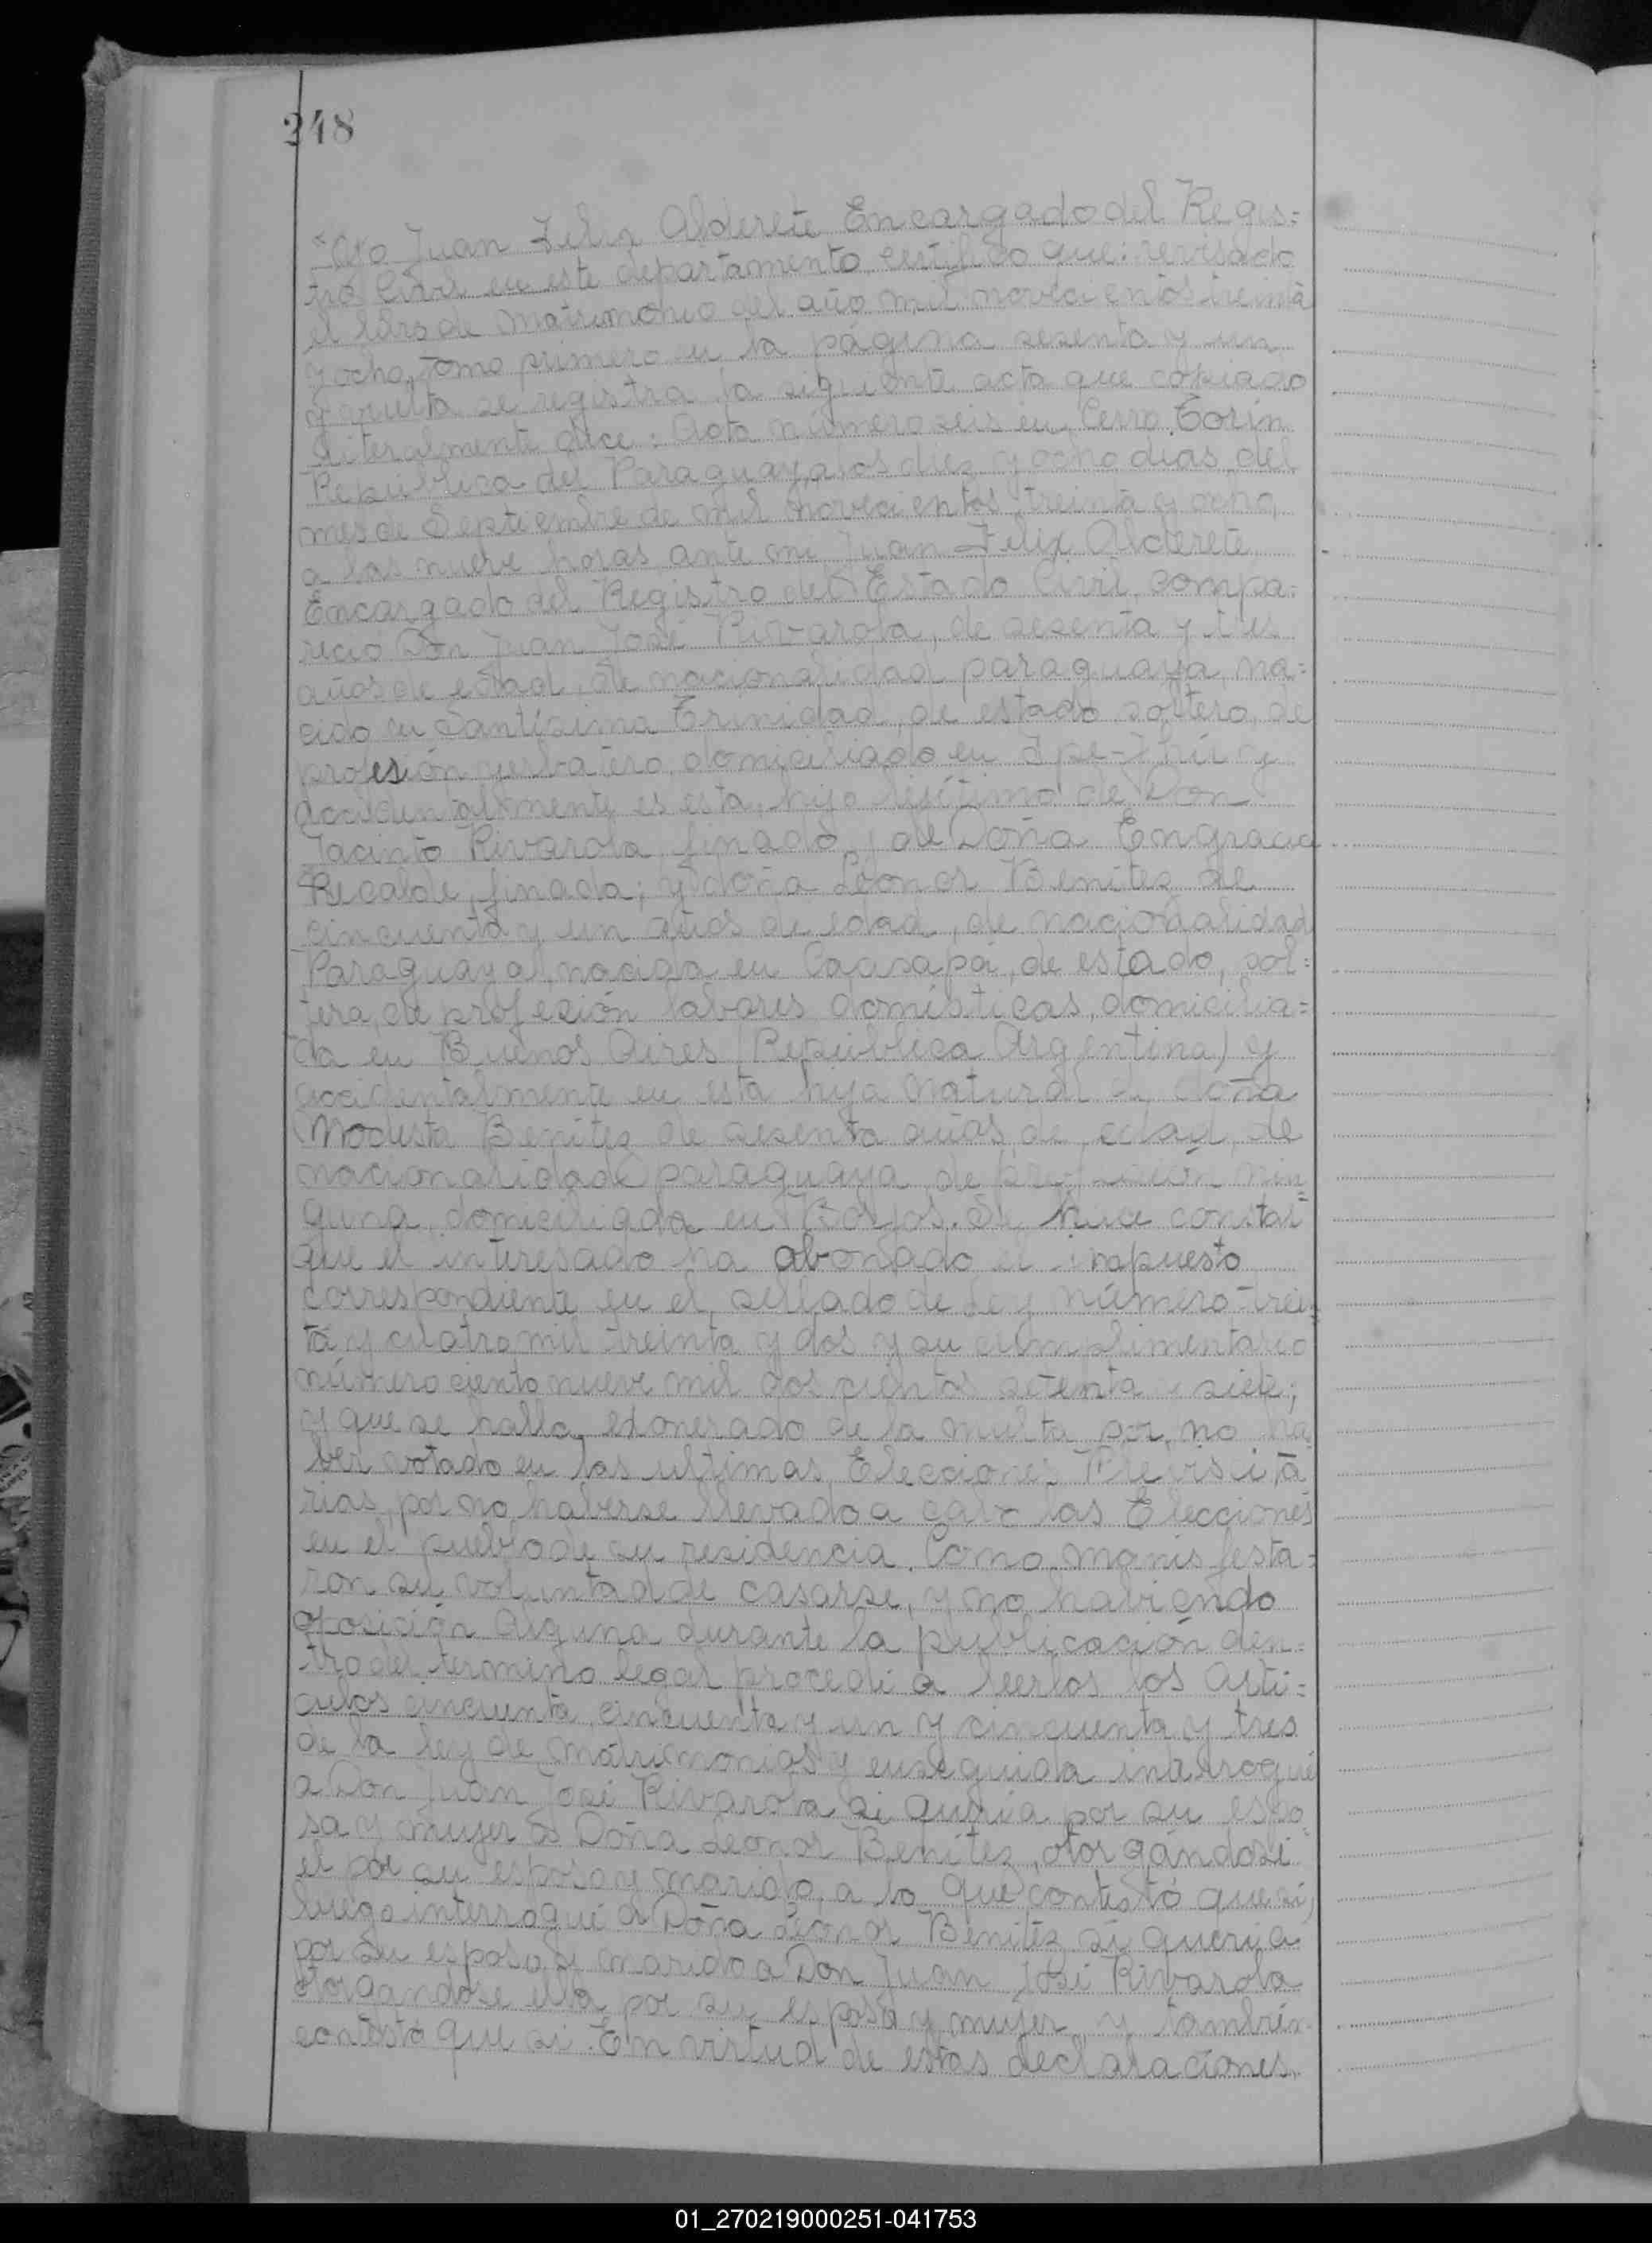 248
"Yo Juan Felix Alderete Encargado del Regis=
tro Civil en este departamento, certifico que: revisado
el libro de matrimonio del año mil novecientos treinta
y ocho, tomo primero en la página sesenta y un
y vuelta se registra la siguiente acta que copiado
literalmente dice: Acta número seis en Cerro Corín
República del Paraguay, a los diez y ocho dias, del
mes de Septiembre de mil novecientos treinta y ocho,
a las nueve horas, ante mi Juan Felix Alderete,
Encargado del Registro del Estado Civil, compa=
recio Don Juan José Rivarola, de sesenta y tres
años de edad, de nacionalidad paraguaya, na=
cido en Santísima Trinidad, de estado soltero, de
profesión yerbatero, domiciliado en Ype-Jhú y
accidentalmente es esta, hijo lejítimo de Don
Jacinto Rivarola, finado y de Doña Engracia
Recalde, finada; y doña Leonor Benitez de
cincuenta y un años de edad, de nacionalidad
Paraguaya, nacida en Caazapá, de estado, sol=
tera, de profesión labores domésticas, domicilia=
da en Buenos Aires (República Argentina) y
accidentalmente en esta hija natural de doña
Modesta Benitez de sesenta años de edad, de
nacionalidad paraguaya, de profesión nin
guna, domiciliada en Se hace constar
que el interesado ha abonado el impuesto
correspondiente en el sellado de Ley número trein
ta y cuatro mil treinta y dos y su cumplimentario
número ciento nueve mil doscientos setenta y siete;
y que se halla exonerado de la multa por no ha
ber votado en las ultimas Elecciones
rias, por no haberse llevado a cabo las Elecciones
en el pueblo de su residencia. Como manisfesta=
ron su voluntad de casarse, y no habiendo
oposición alguna durante la publicación den=
tro del termino legal procedi a leerlos los arti=
culos cincuenta, cincuenta y un y cincuenta y tres
de la ley de matrimonios y enseguida interrogué
a Don Juan José Rivarola si queria por su espo
sa y mujer a Doña Leonor Benítez, otorgándose
el por su esposo y marido, a lo que contestó que si;
luego interrogué a Doña Leonor Benitez si queria
por su esposo y marido a Don Juan José Rivarola
otorgandose ella por su esposa y mujer y tambien
contestó que si. En virtud de estas declaraciones,
01_270219000251-041753